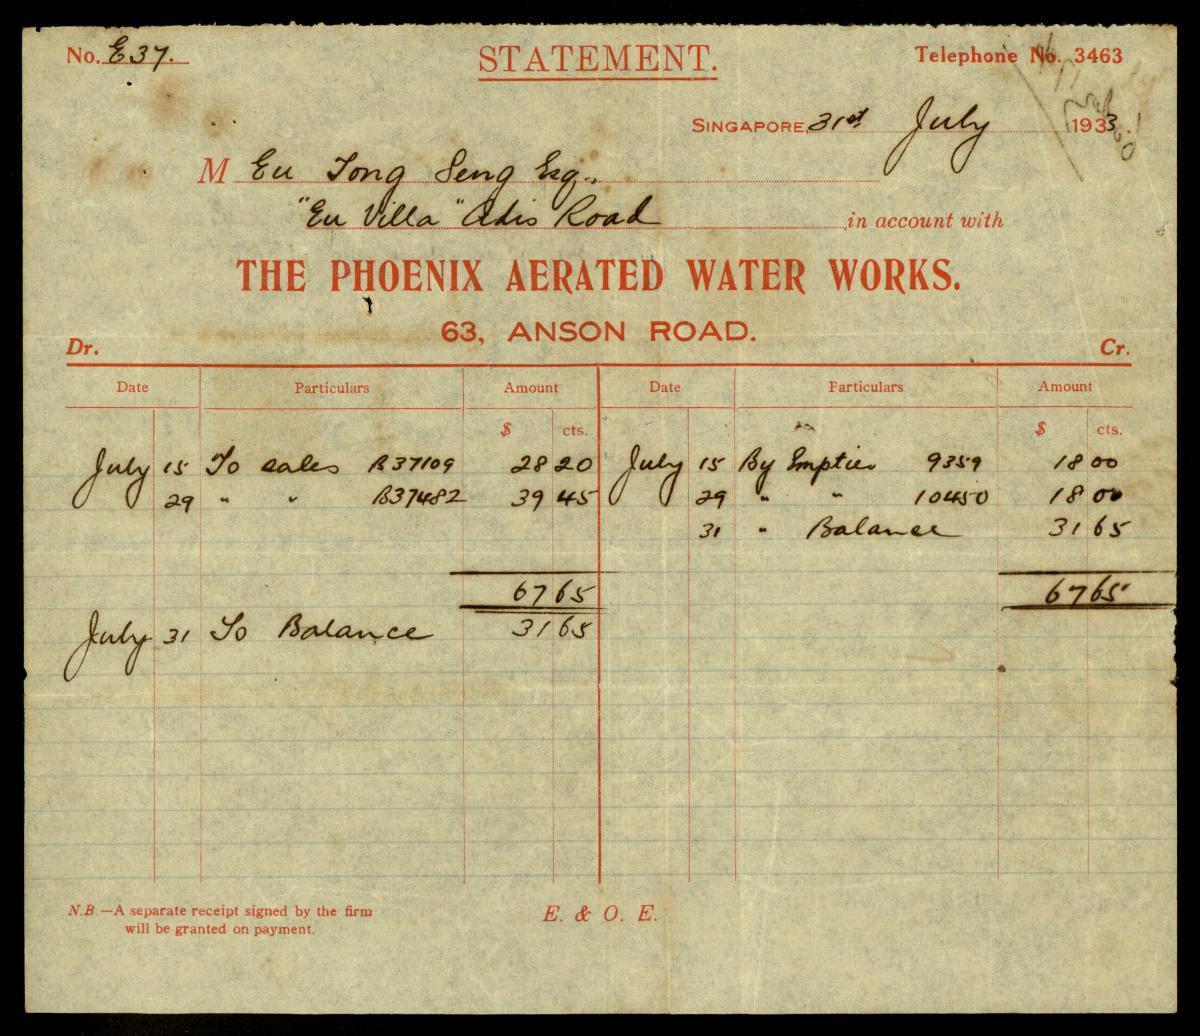 No. E37. STATEMENT. Telephone No. 3463
SINGAPORE, 31st July 1933.
M Eu Tong Seng Esq.,
"Eu Villa" Adis Road in account with
THE PHOENIX AERATED WATER WORKS.
63, ANSON ROAD.
Dr. Cr.
Date Particulars Amount Date Particulars Amount
$ cts. $ cts.
July 15 To sales B37109 28 20 July 15 By Empties 9359 18 00
29 " " B37482 39 45 29 " " 10450 18 00
31 " Balance 31 65
67 65 67 65
July 31 To Balance 31 65
N.B.—A separate receipt signed by the firm
will be granted on payment.
E. & O. E.